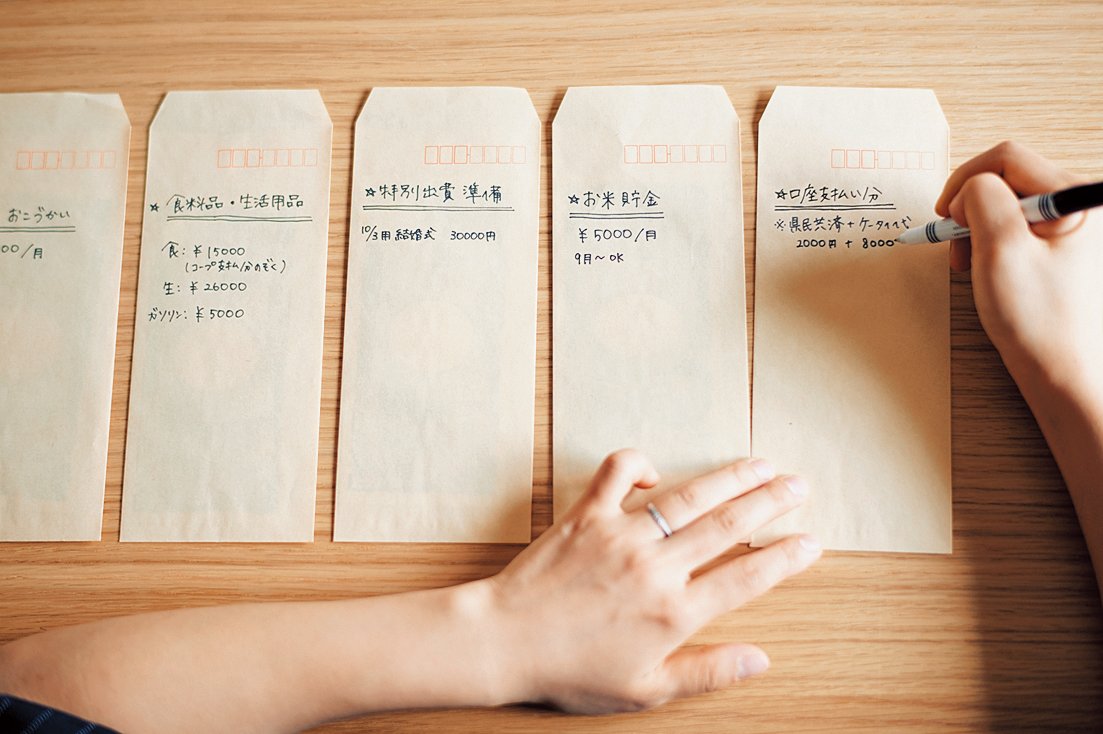 おこづかい
00/月
☆食料品・生活用品
食: ¥15000
(コープ支払い分のぞく)
生: ¥26000
ガソリン: ¥5000
☆特別出費 準備
10/3用 結婚式 30000円
☆お米貯金
¥5000/月
9月〜OK
☆口座支払い分
※県民共済+ケータイ
2000円 + 8000